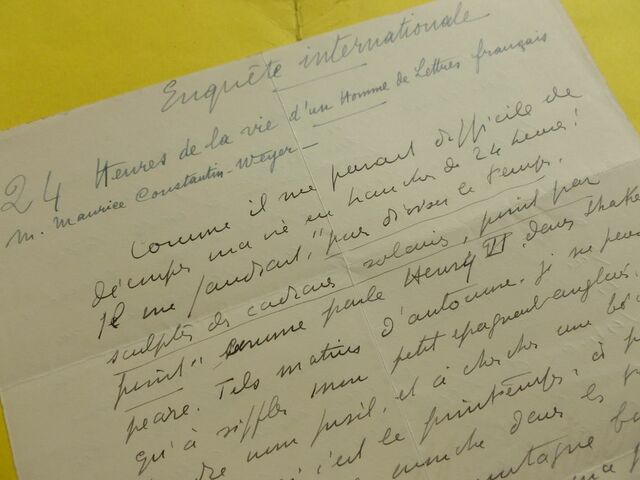 Enquête internationale
24 Heures de la vie d'un Homme de Lettres français
M. Maurice Constantin-Weyer
Comme il me parait difficile de
découper ma vie en tranches de 24 heures!
Il me faudrait, "pour diviser le temps,
sculpter des cadrans solaires, point par
point" comme parle Henry VI dans Shakes
peare. Tels matins d'automne, je ne
qu'à siffler mon petit épagneul anglais,
mon fusil, et à chercher une
c'est le printemps, à
manche dans les
montagne